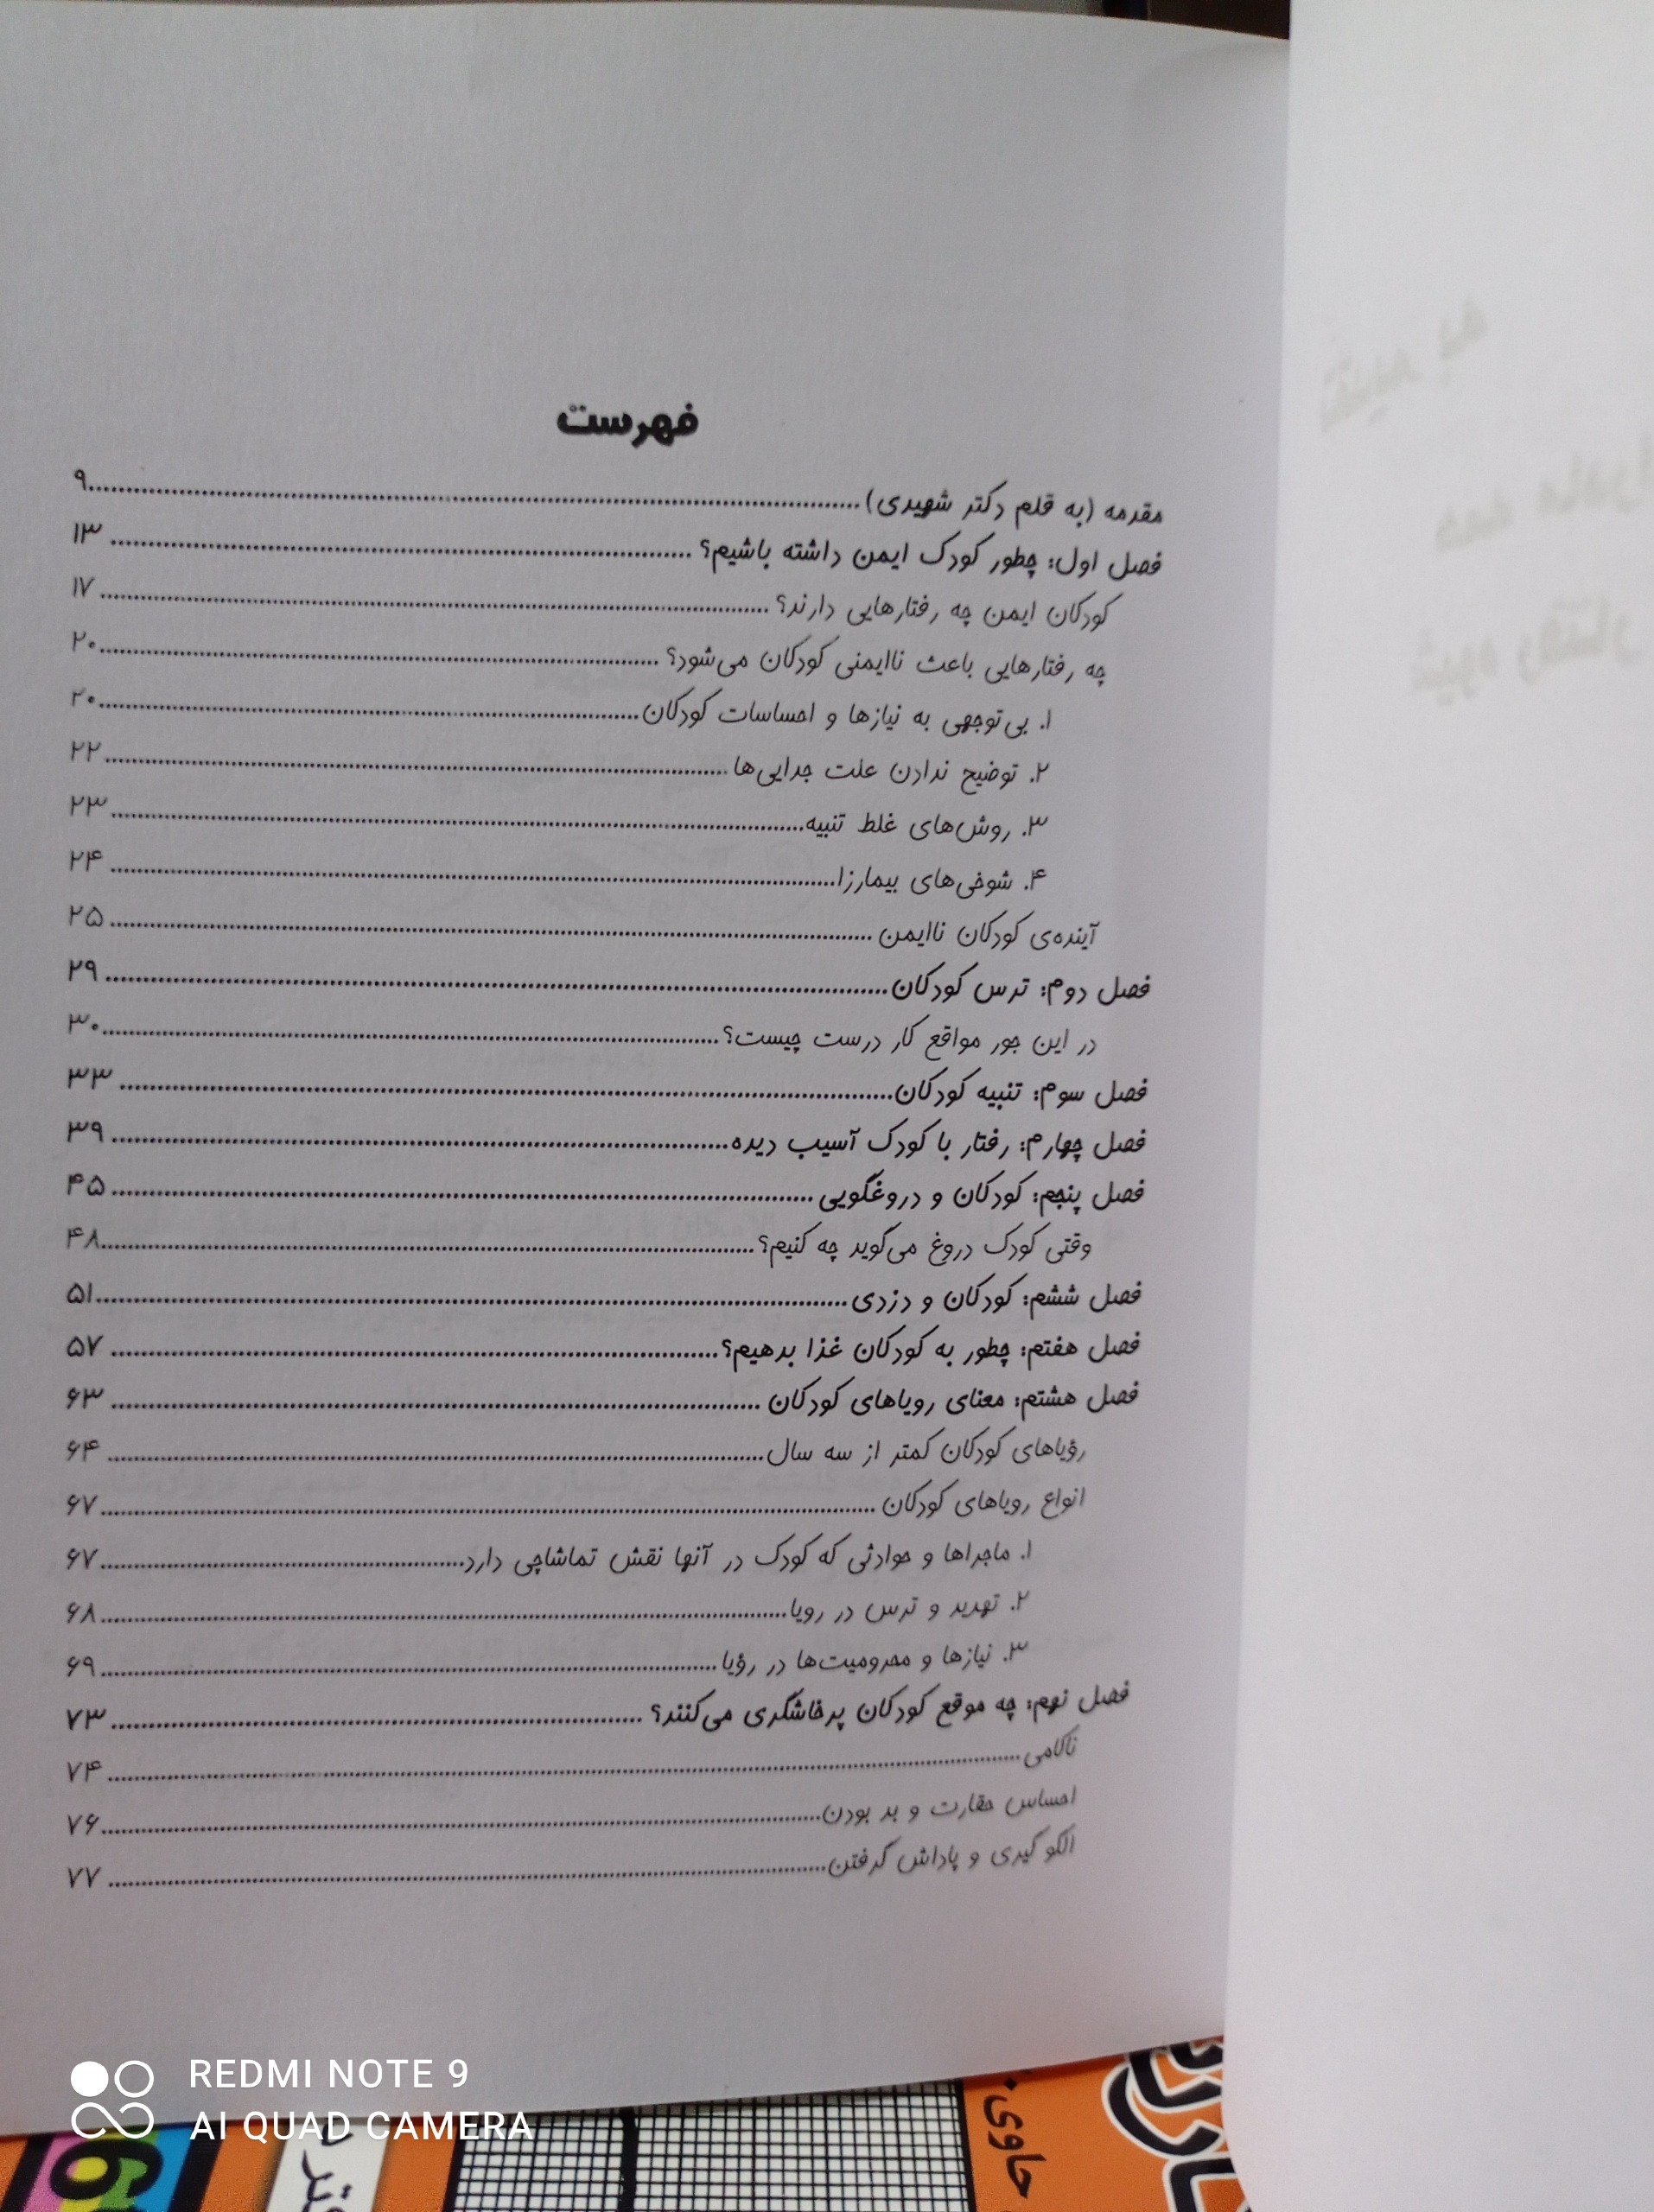 فهرست
مقدمه (به قلم دکتر شهیدی)........................۹
فصل اول: چطور کودک ایمن داشته باشیم؟........................۱۳
کودکان ایمن چه رفتارهایی دارند؟........................۱۷
چه رفتارهایی باعث ناایمنی کودکان می‌شود؟........................۲۰
۱. بی‌توجهی به نیازها و احساسات کودکان........................۲۰
۲. توضیح ندادن علت جدایی‌ها........................۲۲
۳. روش‌های غلط تنبیه........................۲۳
۴. شوخی‌های بیمارزا........................۲۴
آینده‌ی کودکان ناایمن........................۲۵
فصل دوم: ترس کودکان........................۲۹
در این جور مواقع کار درست چیست؟........................۳۰
فصل سوم: تنبیه کودکان........................۳۳
فصل چهارم: رفتار با کودک آسیب دیده........................۳۹
فصل پنجم: کودکان و دروغگویی........................۴۵
وقتی کودک دروغ می‌گوید چه کنیم؟........................۴۸
فصل ششم: کودکان و دزدی........................۵۱
فصل هفتم: چطور به کودکان غذا بدهیم؟........................۵۷
فصل هشتم: معنای رویاهای کودکان........................۶۳
رؤیاهای کودکان کمتر از سه سال........................۶۴
انواع رویاهای کودکان........................۶۷
۱. ماجراها و حوادثی که کودک در آنها نقش تماشاچی دارد........................۶۷
۲. تهدید و ترس در رویا........................۶۸
۳. نیازها و محرومیت‌ها در رؤیا........................۶۹
فصل نهم: چه موقع کودکان پرخاشگری می‌کنند؟........................۷۳
ناکامی........................۷۴
احساس حقارت و بد بودن........................۷۶
الگو گیری و پاداش گرفتن........................۷۷
REDMI NOTE 9
AI QUAD CAMERA
حاوی